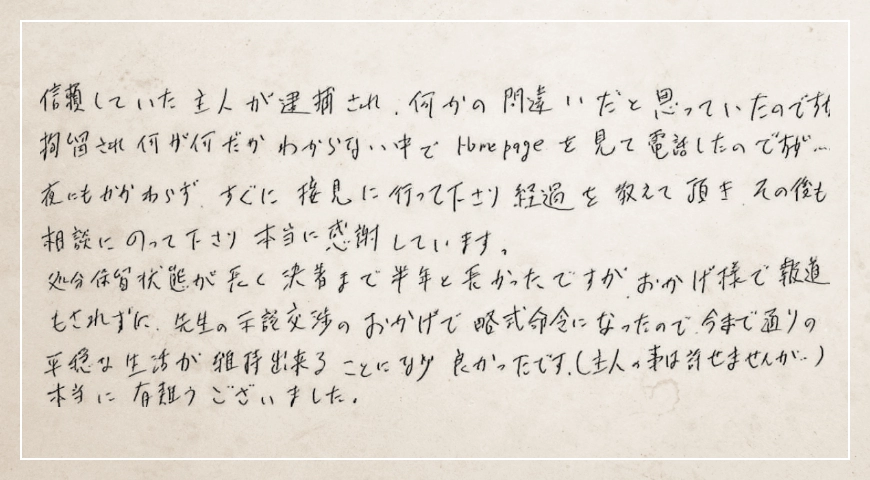 信頼していた主人が逮捕され、何かの間違いだと思っていたのですが
拘留され何が何だかわからない中でHomepageを見て電話したのですが…
夜にもかかわらず、すぐに接見に行って下さり経過を教えて頂き、その後も
相談にのって下さり本当に感謝しています。
処分保留状態が長く決着まで半年と長かったですが、おかげ様で報道
もされずに、先生の示談交渉のおかげで略式命令になったので、今まで通りの
平穏な生活が維持出来ることになり良かったです。(主人の事は許せませんが…)
本当に有難うございました。